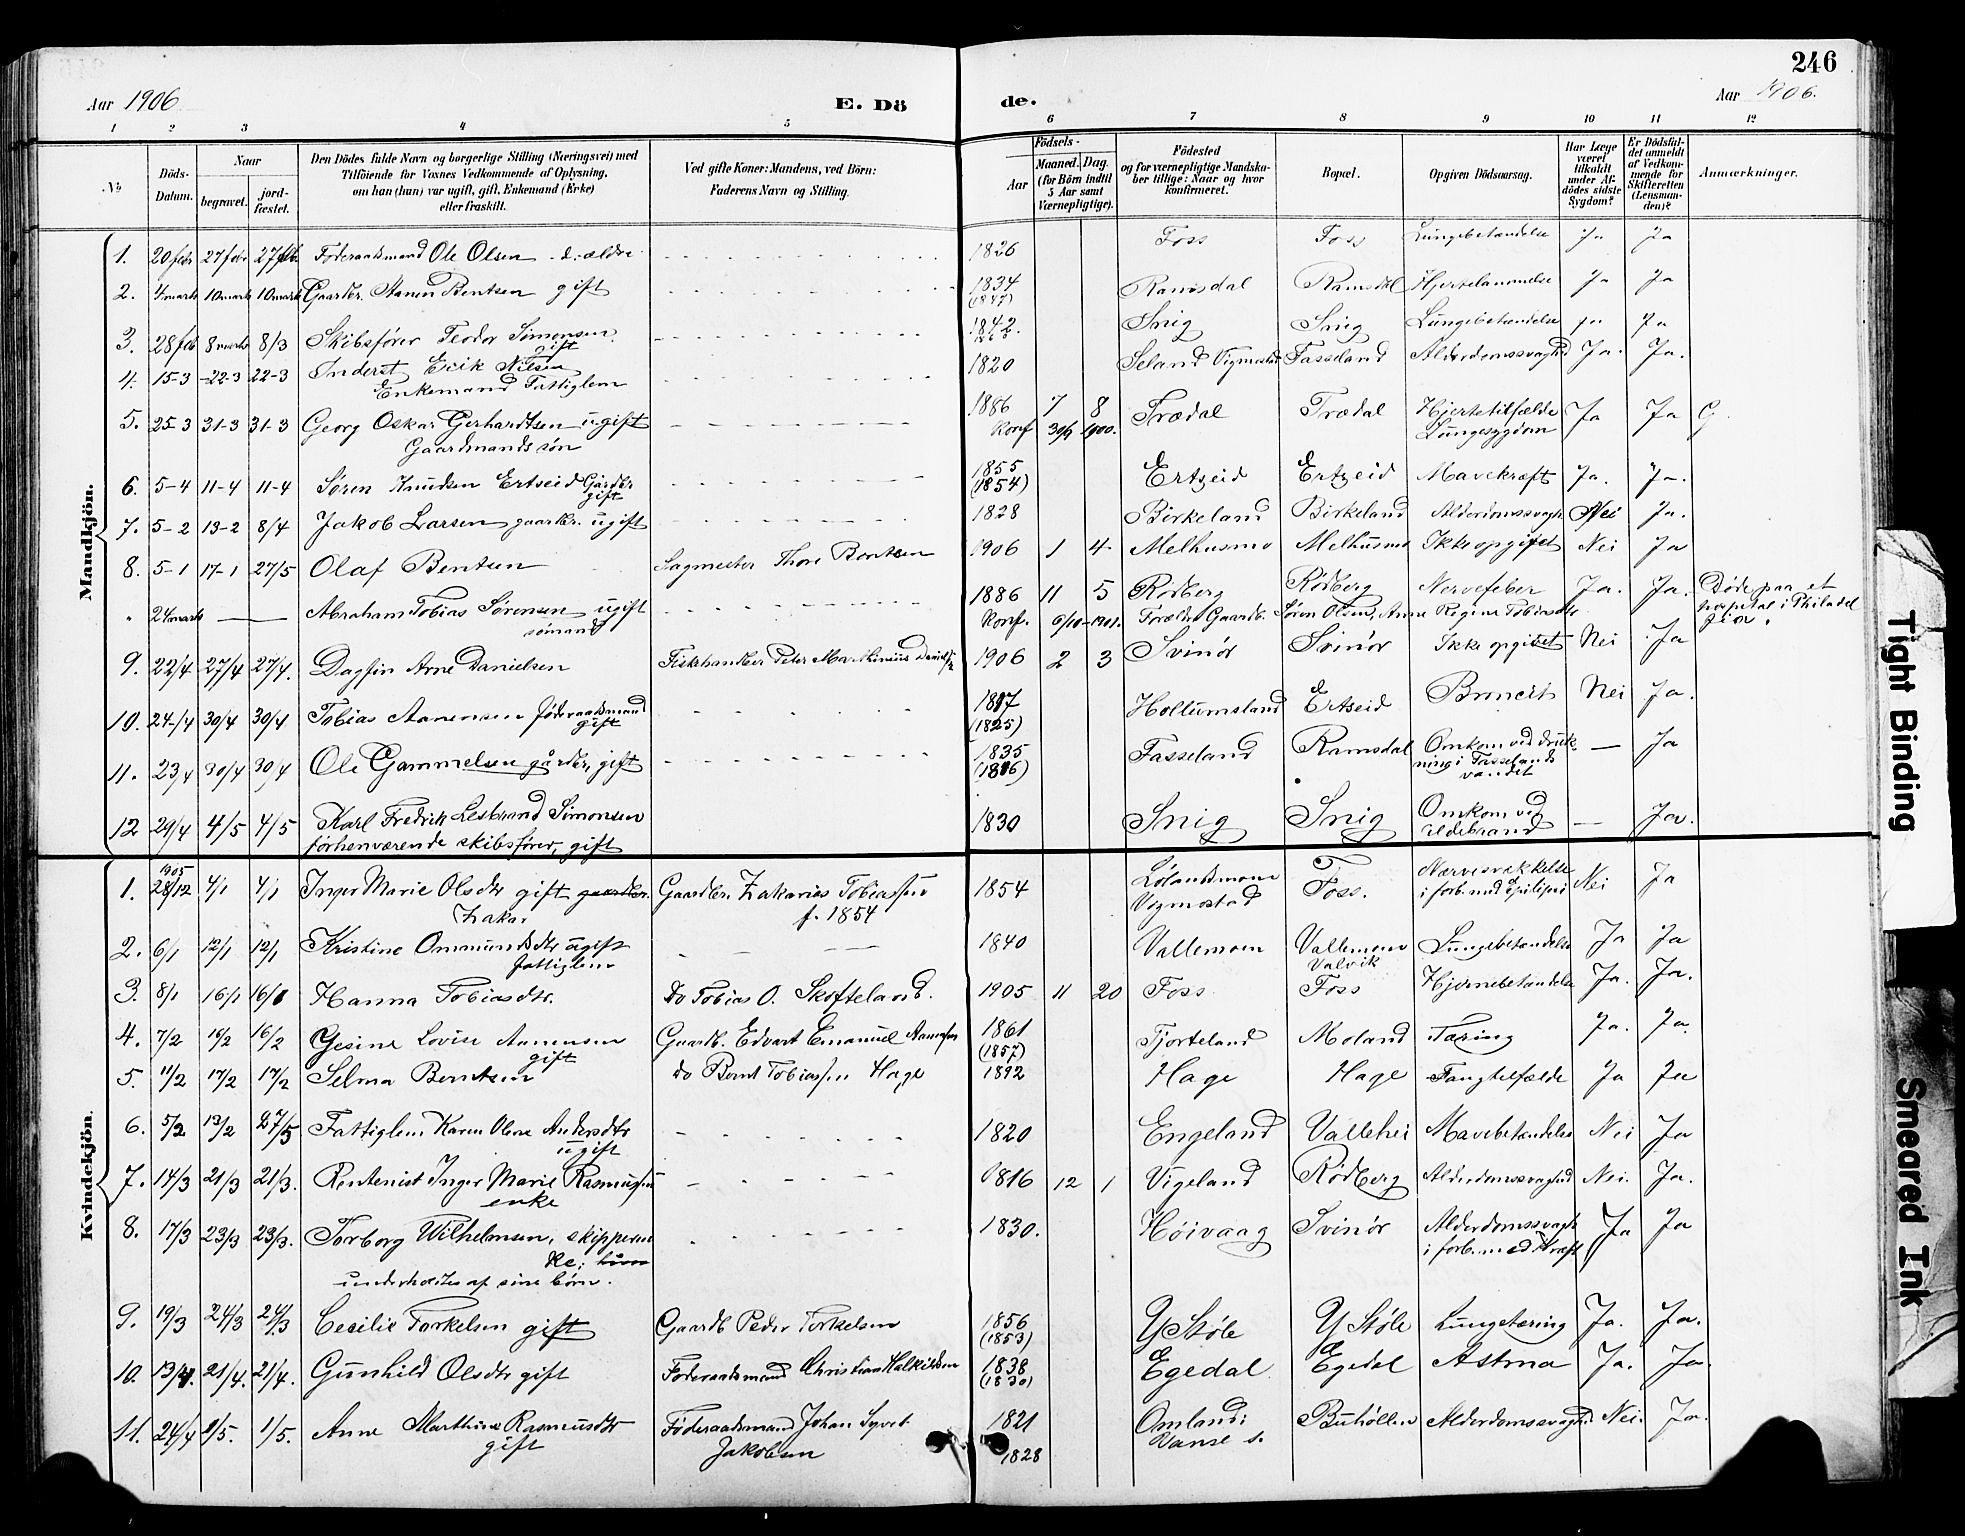 246
Aar 1906
E. Dö
de.
Aar 1906.
1 2 3 4 5 6 7 8 9 10 11 12
No
Döds-Datum.
Naar
begravet.
jord-fæstet.
Den Dödes fulde Navn og borgerlige Stilling (Næringsvei) med
Tilföiende for Voxnes Vedkommende af Oplysning,
om han (hun) var ugift, gift, Enkemand (Enke)
eller fraskilt.
Ved gifte Koner: Mandens, ved Börn:
Faderens Navn og Stilling.
Födsels-
Aar
Maaned. Dag.
(for Börn indtil
5 Aar samt
Værnepligtige).
Födested
og for værnepligtige Mandska-
ber tillige: Naar og hvor
konfirmeret.
Bopæl.
Opgiven Dödsaarsag.
Har Læge
været
tilkaldt
under Af-
dödes sidste
Sygdom?
Er Dödsfal-
det anmeldt
af Vedkom-
mende for
Skifteretten
(Lensman-
den)?
Anmærkninger.
Mandkjön.
1. 20 febr 27 febr 27 feb. Föderaadsmand Ole Olsen d. ældre 1826 Foss Foss Lungebetændelse Ja Ja
2. 4 marts 10 marts 10 marts Gaardbr. Aanen Bentsen gift 1834 Ramsdal Ramsdal Hjertelammelse Ja Ja
(1847)
3. 28 feb 8 marts 8/3 Skibsförer Teodor Simonsen 1842. Snig Snig Lungebetændelse Ja Ja
gift
4. 15-3 22-3 22-3 Inderst Erik Nilsen 1820 Seland Vigmostad Fasseland Alderdomssvaghed Ja. Ja.
Enkemand Fattiglem
5. 25-3 31-3 31-3 Georg Oskar Gerhardtsen ugift 1886 7 8 Trædal Trædal Hjertetilfælde Ja Ja G.
Gaardmands søn Konf 30/9 1900. Lungesygdom
6. 5-4 11-4 11-4 Søren Knudsen Ertseid Gårdbr 1855 Ertzeid Ertzeid Mavekræft Ja. Ja.
gift (1854)
7. 5-2 13-2 8/4 Jakob Larsen gaardbr. ugift 1828 Birkeland Birkeland Alderdomssvagh. Nei Ja.
8. 5-1 17-1 27/5 Olaf Bentsen Sagmester Thore Bentsen 1906 1 4 Melhusmo Melhusmo Ikke opgivet Nei Ja
" 24 marts — Abraham Tobias Sörensen ugift 1886 11 5 Rödberg Rödberg Nervefeber Ja. Ja. Døde paa et
sømand Konf. 6/10-1901. Foræld. Gaardb. Søren Olsen, Anne Regine Tobiasdtr hospital i Philadel
fia.
9. 22/4 27/4 27/4. Dagfin Arne Danielsen Fiskhandler Peter Marthinius 1906 2 3 Svinör Svinör Ikke opgivet Nei Ja
10. 24/4 30/4 30/4 Tobias Aanensen föderaadsmand 1817 Hollumsland Ertseid Nei Ja.
gift (1825)
11. 23/4 30/4 30/4 Ole Gammelsen gårdbr, gift 1835 Fasseland Ramsdal Omkom ved druk- — Ja
ning i Fasselands
vandet
12 29/4 4/5 4/5 Karl Fredrik Lesbrand Simonsen 1830 Snig Snig Omkom ved — Ja.
forhenværende skibsförer, gift ildebrand
Kvindekjön.
1905
1. 28/12 4/1 4/1 Inger Marie Olsdtr gift gaardbr. Gaardbr. Zakarias Tobiassen 1854 Foss. Nei Ja
Zakar f. 1854 Vigmostad i forb. med Epilepsi
2. 6/1 12/1 12/1 Kristine Ommundsdtr ugift 1840 Vallemoen Vallemoen Lungebetændelse Ja Ja
Fattiglem Valvik
3. 8/1 16/1 16/1 Hanna Tobiasdtr. Do Tobias O. Skofteland. 1905 11 20 Foss Foss Hjernebetændelse Ja. Ja.
4. 7/2 16/2 16/2 Gesine Lovise Aanensen Gaardb. Edvart Emanuel Aanensen 1861 Fjorteland Moland Tæring Ja. Ja.
gift (1857)
5. 11/2 17/2 17/2 Selma Berntsen do Bernt Tobiassen Hage 1892 Hage Hage Tangtilfælde Ja Ja
6. 5/2 13/2 27/5 Fattiglem Karen Olene Andersdtr 1820 Engeland Vallehei Mavebetændelse Nei Ja
ugift
7. 14/3 21/3 21/3. Rentenist Inger Marie Rasmussen 1816 12 1 Vigeland Rödberg Alderdomssvaghed Nei. Ja.
enke
8. 17/3 23/3 23/3. Torborg Wilhelmsen, skipperen 1830. Höivaag Svinör Alderdomssvagh. Ja Ja
ke; i forb. med Kræft
underholdtes af sine børn.
9. 19/3 24/3 24/3 Cecilie Torkelsen gift Gaardb Peder Torkelsen 1856 Y Støle Y Støle Lungetæring Ja. Ja.
(1853)
10. 13/4. 21/4. 21/4. Gunhild Olsdtr gift Föderaadsmand Christian Halkildsen 1838 Egedal Egedal Astma Ja. Ja.
(1830)
11. 24/4 1/5. 1/5. Anne Marthine Rasmusdtr Föderaadsmand Johan Syvert 1821 Omland: Buhöllen Alderdomssvaghed Nei. Ja.
gift Jakobsen 1828 Vanse s.
Tight Binding
Smeared Ink